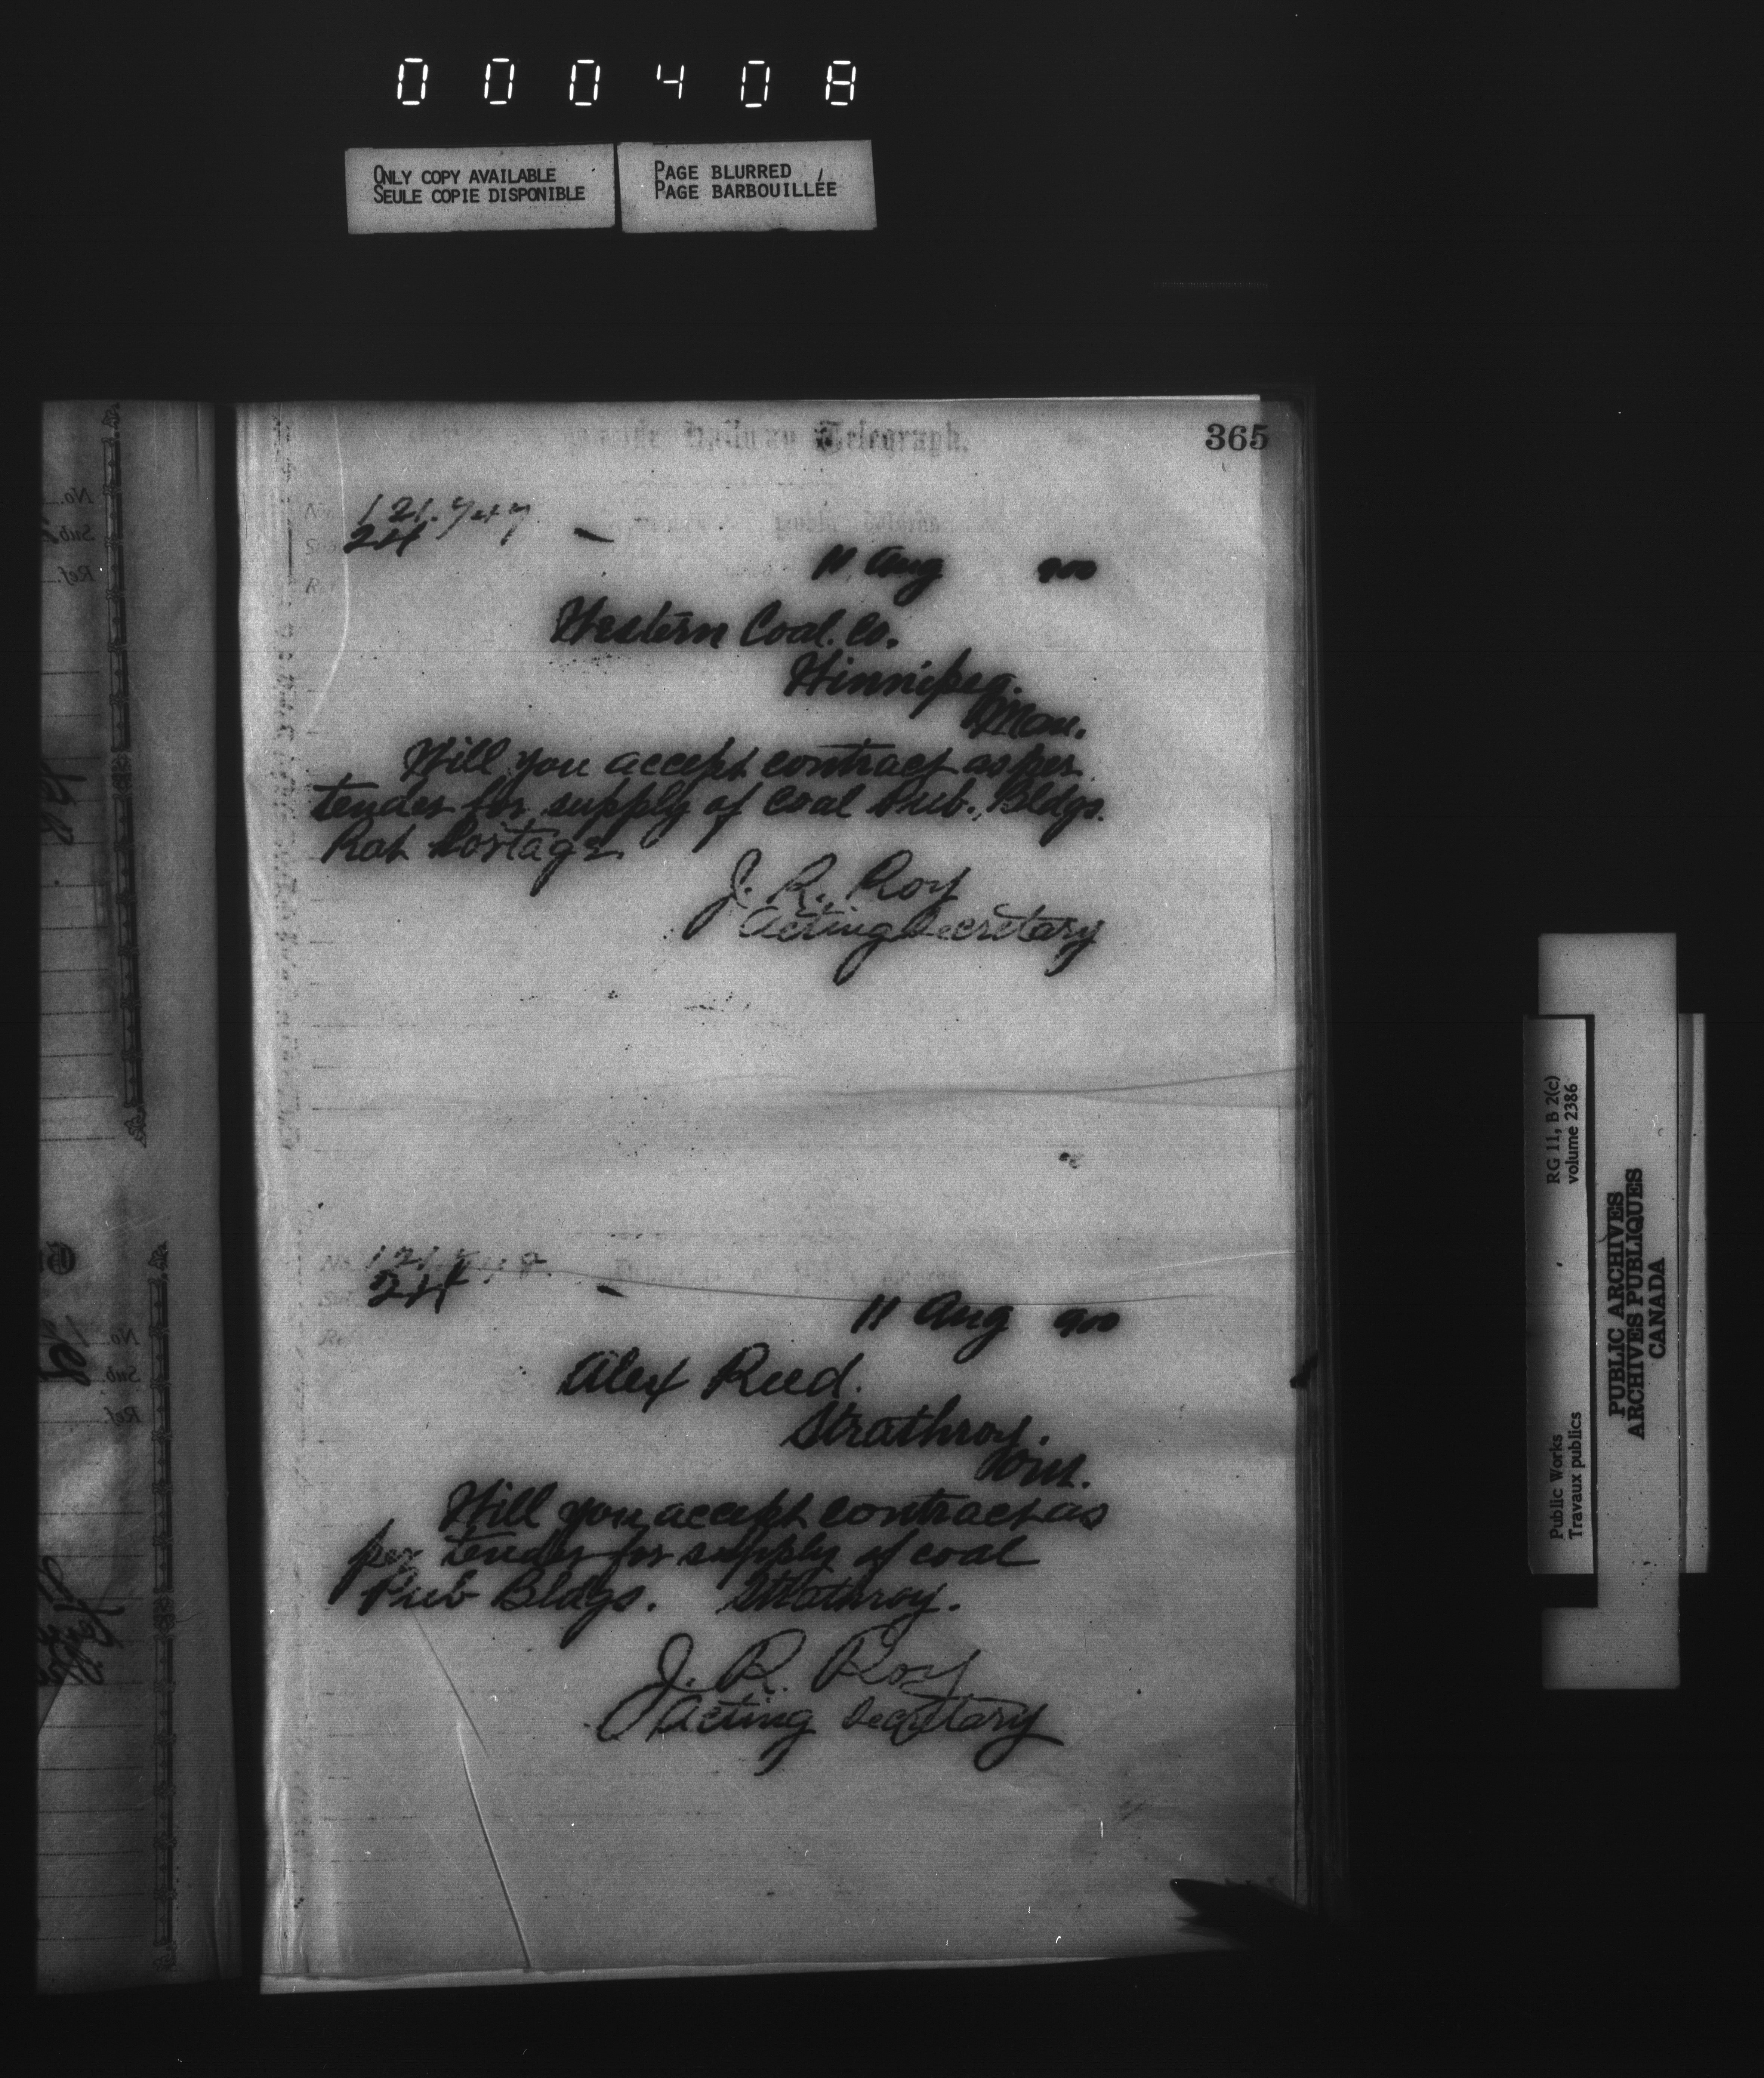 000408
ONLY COPY AVAILABLE
SEULE COPIE DISPONIBLE
PAGE BLURRED
PAGE BARBOUILLÉE
Railway Telegraph.
365
No. 121.747
Sub 24
Ref
11 Aug 900
Western Coal. Co.
Winnipeg.
Man.
Will you accept contract as per
tender for supply of coal Pub. Bldgs.
Rat Portage.
J. R. Roy
Acting Secretary
No.
Sub 24
Re
11 Aug 900
Alex Reed.
Strathroy.
Ont.
Will you accept contract as
per tender for supply of coal
Pub Bldgs. Strathroy.
J. R. Roy
Acting Secretary
No.
Sub.
Ref.
No.
Sub
Ref.
Public Works
Travaux publics
RG 11, B 2(c)
volume 2386
PUBLIC ARCHIVES
ARCHIVES PUBLIQUES
CANADA